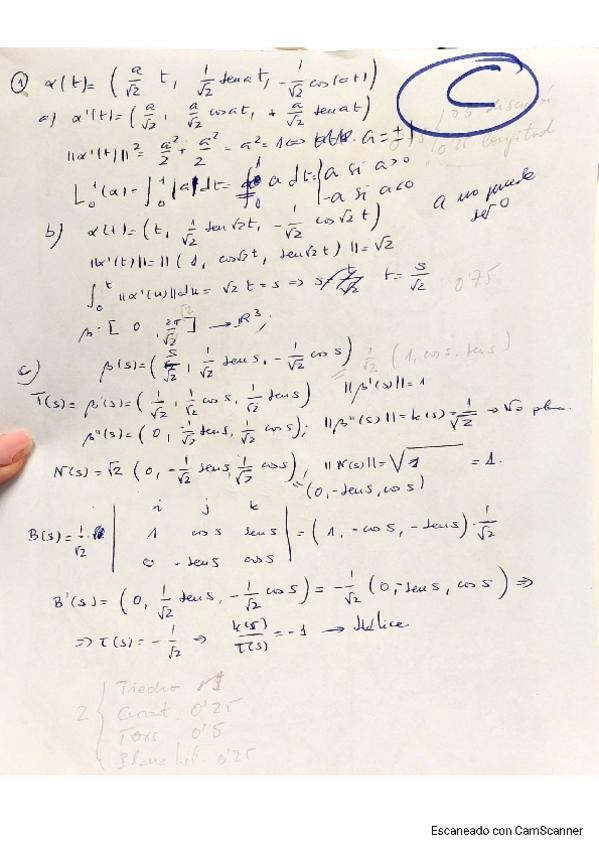 ① α(t) = ( a/√2 t, 1/√2 sen at, -1/√2 cos(at) )
C
a) α'(t) = ( a/√2, a/√2 cos at, + a/√2 sen at )
||α'(t)||² = a²/2 + a²/2 = a² = 1 ⇔ a = ±1
L₀¹(α) = ∫₀¹ |a| dt = ∫₀¹ a dt = { a si a>0
-a si a<0
a no puede ser 0
b) α(t) = ( t, 1/√2 sen √2 t, -1/√2 cos √2 t )
||α'(t)|| = || ( 1, cos √2 t, sen √2 t ) || = √2
∫₀ᵗ ||α'(u)|| du = √2 t = s ⇒ t = s/√2 0'75
β: [ 0, 2π/√2 ] → ℝ³;
β(s) = ( s/√2, 1/√2 sen s, -1/√2 cos s )
1/√2 ( 1, cos s, sen s )
c) T(s) = β'(s) = ( 1/√2, 1/√2 cos s, 1/√2 sen s ) ||β'(s)|| = 1
β''(s) = ( 0, -1/√2 sen s, 1/√2 cos s ); ||β''(s)|| = k(s) = 1/√2 → No plana.
N(s) = √2 ( 0, -1/√2 sen s, 1/√2 cos s ), ||N(s)|| = √1 = 1.
= (0, -sen s, cos s)
i j k
B(s) = 1/√2 · | 1 cos s sen s | = ( 1, -cos s, -sen s ) · 1/√2
0 -sen s cos s
B'(s) = ( 0, 1/√2 sen s, -1/√2 cos s ) = -1/√2 ( 0, -sen s, cos s ) ⇒
⇒ τ(s) = -1/√2 ⇒ k(s)/τ(s) = -1 → Hélice
2 { Triedro 1
Curvat 0'25
Tors 0'5
Plana hel. 0'25
Escaneado con CamScanner